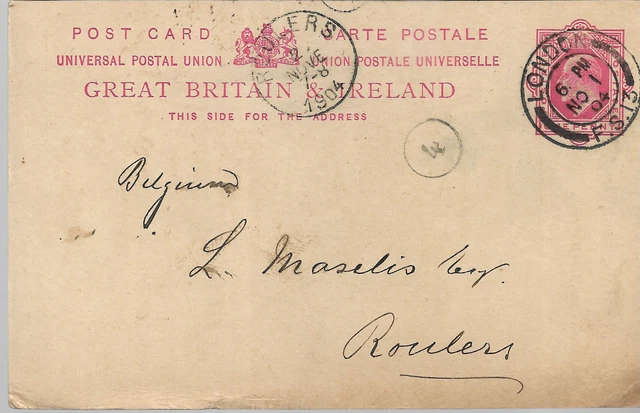 POST CARD CARTE POSTALE
UNIVERSAL POSTAL UNION UNION POSTALE UNIVERSELLE
GREAT BRITAIN & IRELAND
THIS SIDE FOR THE ADDRESS
ROULERS
2
NOVE
7-8
1904
LONDON
6 PM
NO 1
04
F.S. 13
4
Belgium
L. Maselis Esq.
Roulers